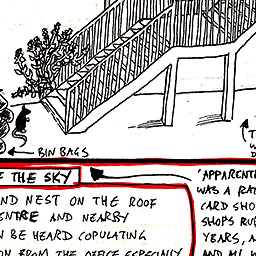 BIN BAGS
E THE SKY
ND NEST ON THE ROOF
ENTRE AND NEARBY
N BE HEARD COPULATING
ON FROM THE OFFICE ESPECIALLY
'APPARENT
WAS A RAT
CARD SHO
SHOPS RU
YEARS, A
AND M